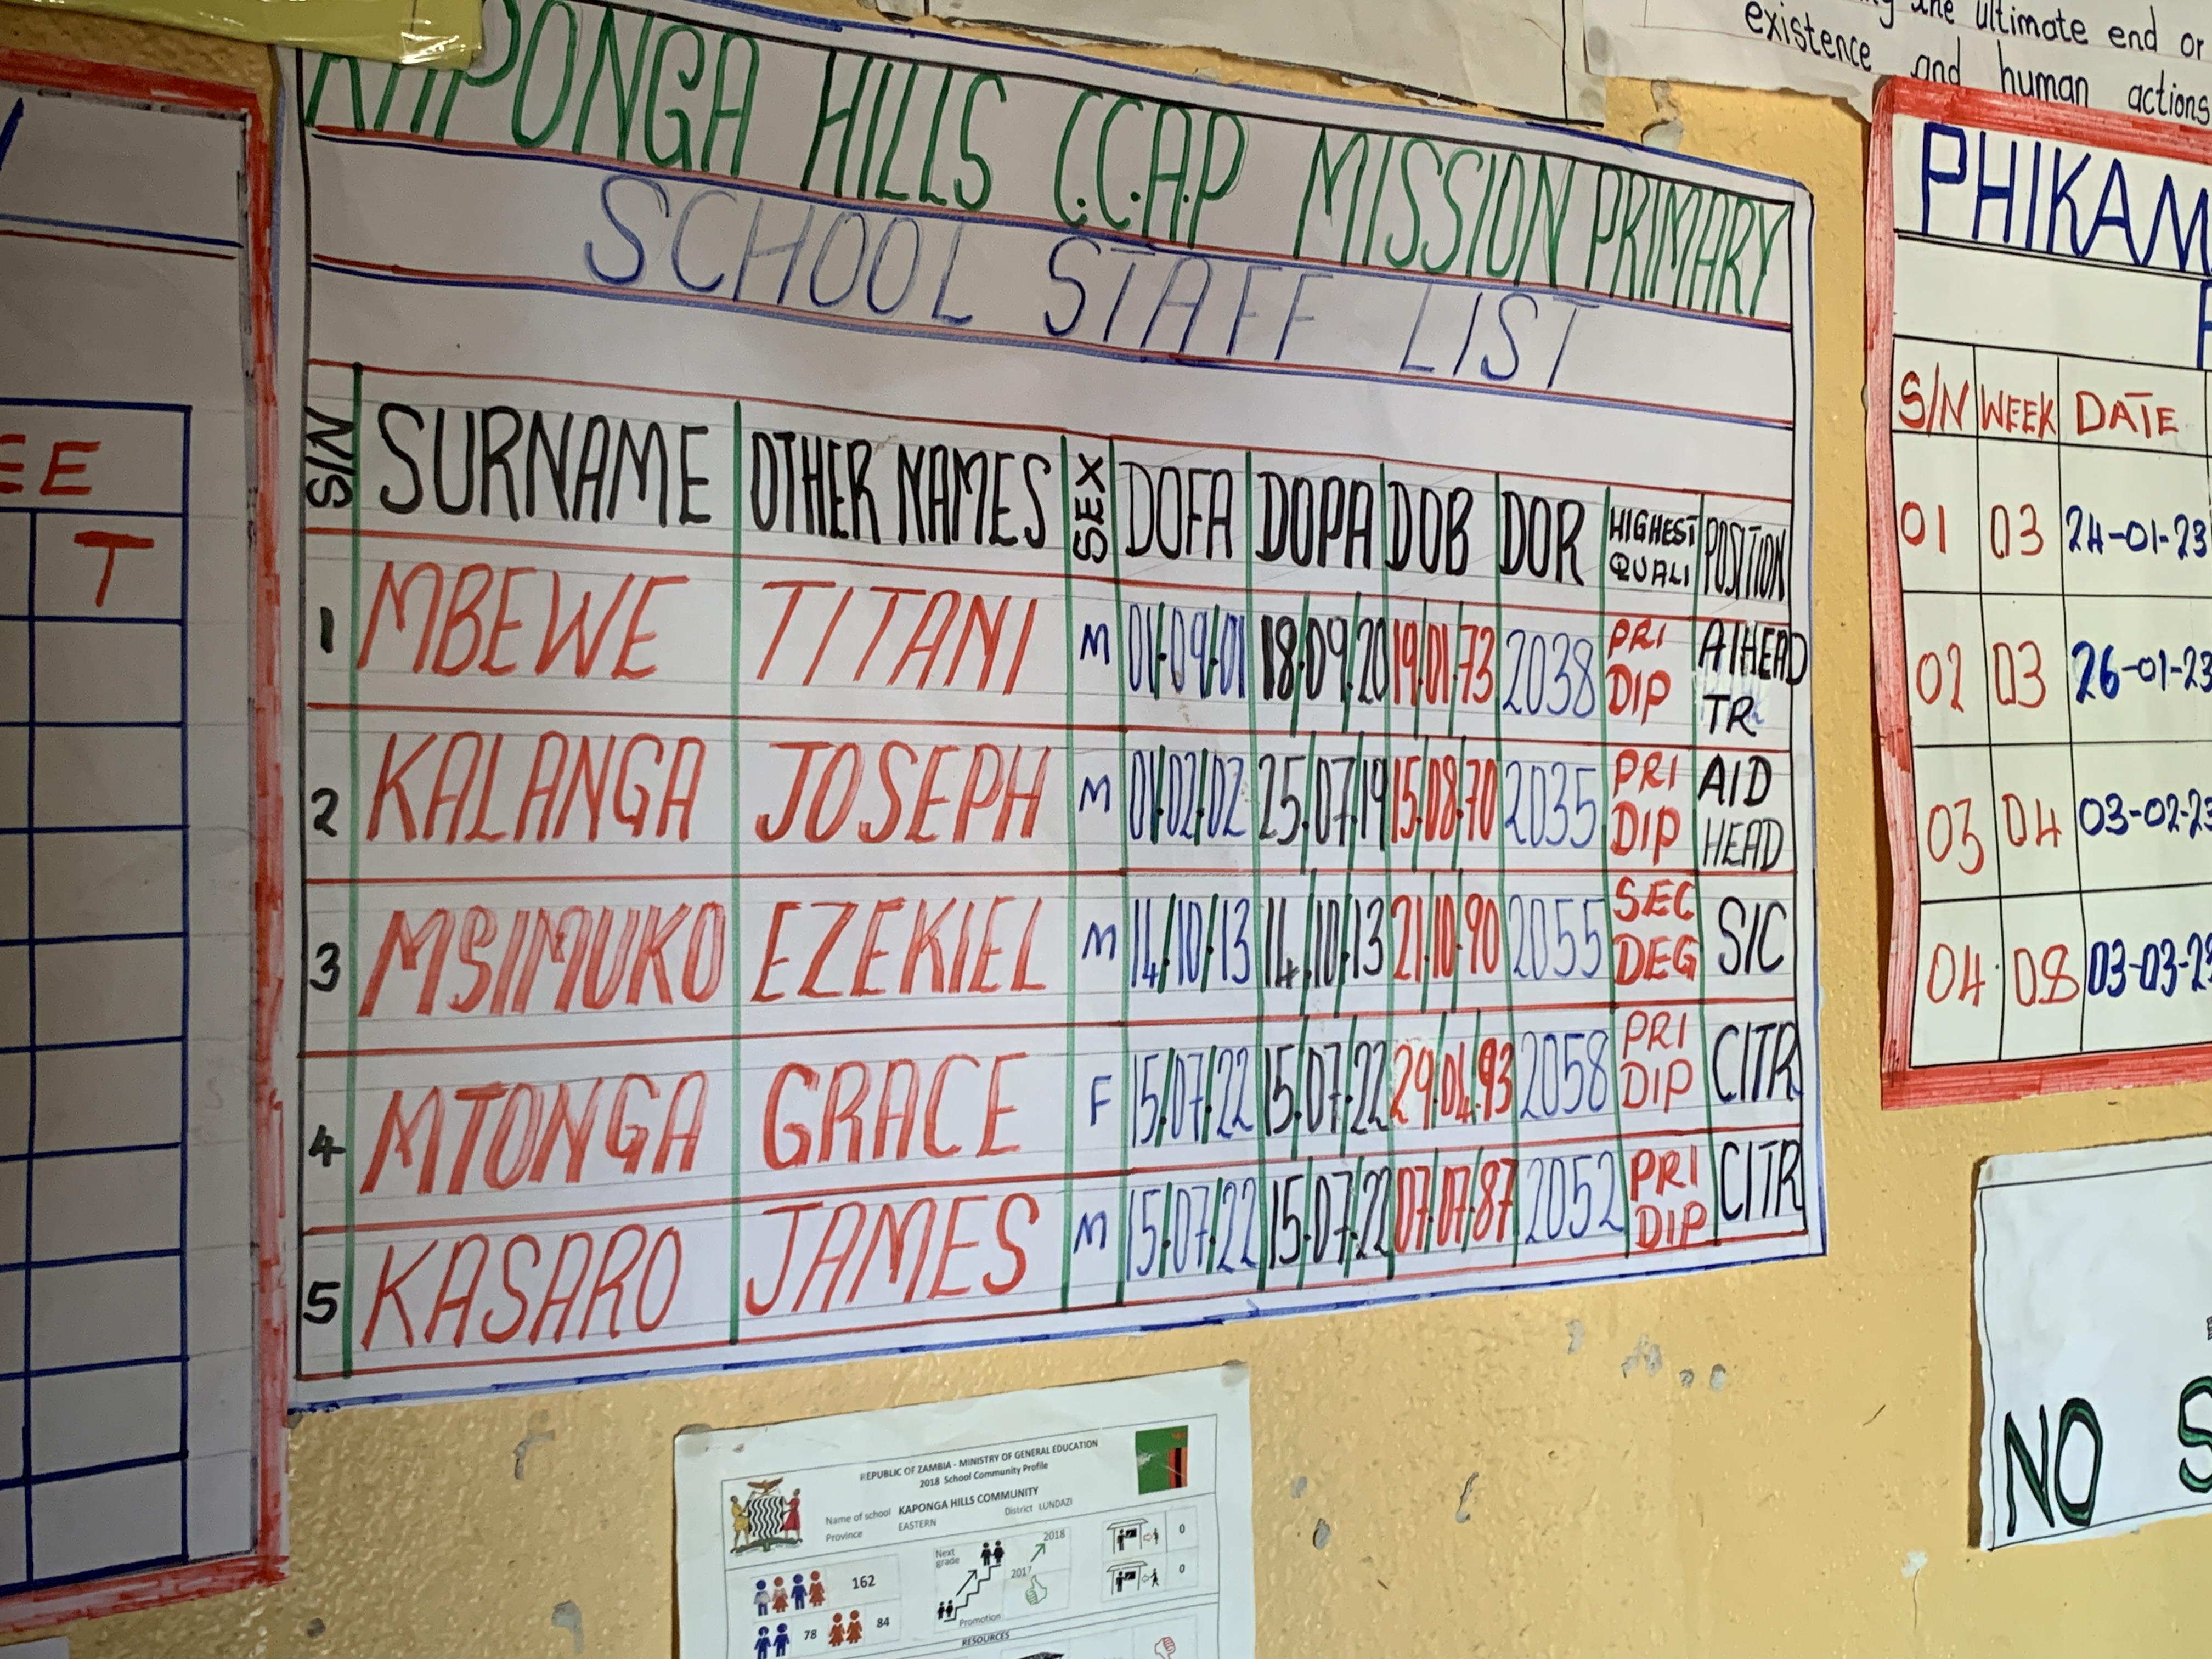 ng the ultimate end or
existence and human actions
KAPONGA HILLS C.C.A.P MISSION PRIMARY
SCHOOL STAFF LIST
S/N SURNAME OTHER NAMES SEX DOFA DOPA DOB DOR HIGHEST QUALI POSITION
1 MBEWE TITANI M 01/09/01 18/09/20 19/01/73 2038 PRI DIP A/HEAD TR
2 KALANGA JOSEPH M 01/02/02 25/07/19 15/08/70 2035 PRI DIP AID HEAD
3 MSIMUKO EZEKIEL M 14/10/13 14/10/13 21/10/90 2055 SEC DEG S/C
4 MTONGA GRACE F 15/07/22 15/07/22 29/04/93 2058 PRI DIP C/TR
5 KASARO JAMES M 15/07/22 15/07/22 07/07/87 2052 PRI DIP C/TR
EE
T
PHIKAM
S/N WEEK DATE
01 03 24-01-23
02 03 26-01-23
03 04 03-02-23
04 08 03-03-2
NO S
REPUBLIC OF ZAMBIA - MINISTRY OF GENERAL EDUCATION
2018 School Community Profile
Name of school KAPONGA HILLS COMMUNITY
Province EASTERN District LUNDAZI
162
78 84
Next grade
2017 2018
Promotion
0
0
RESOURCES